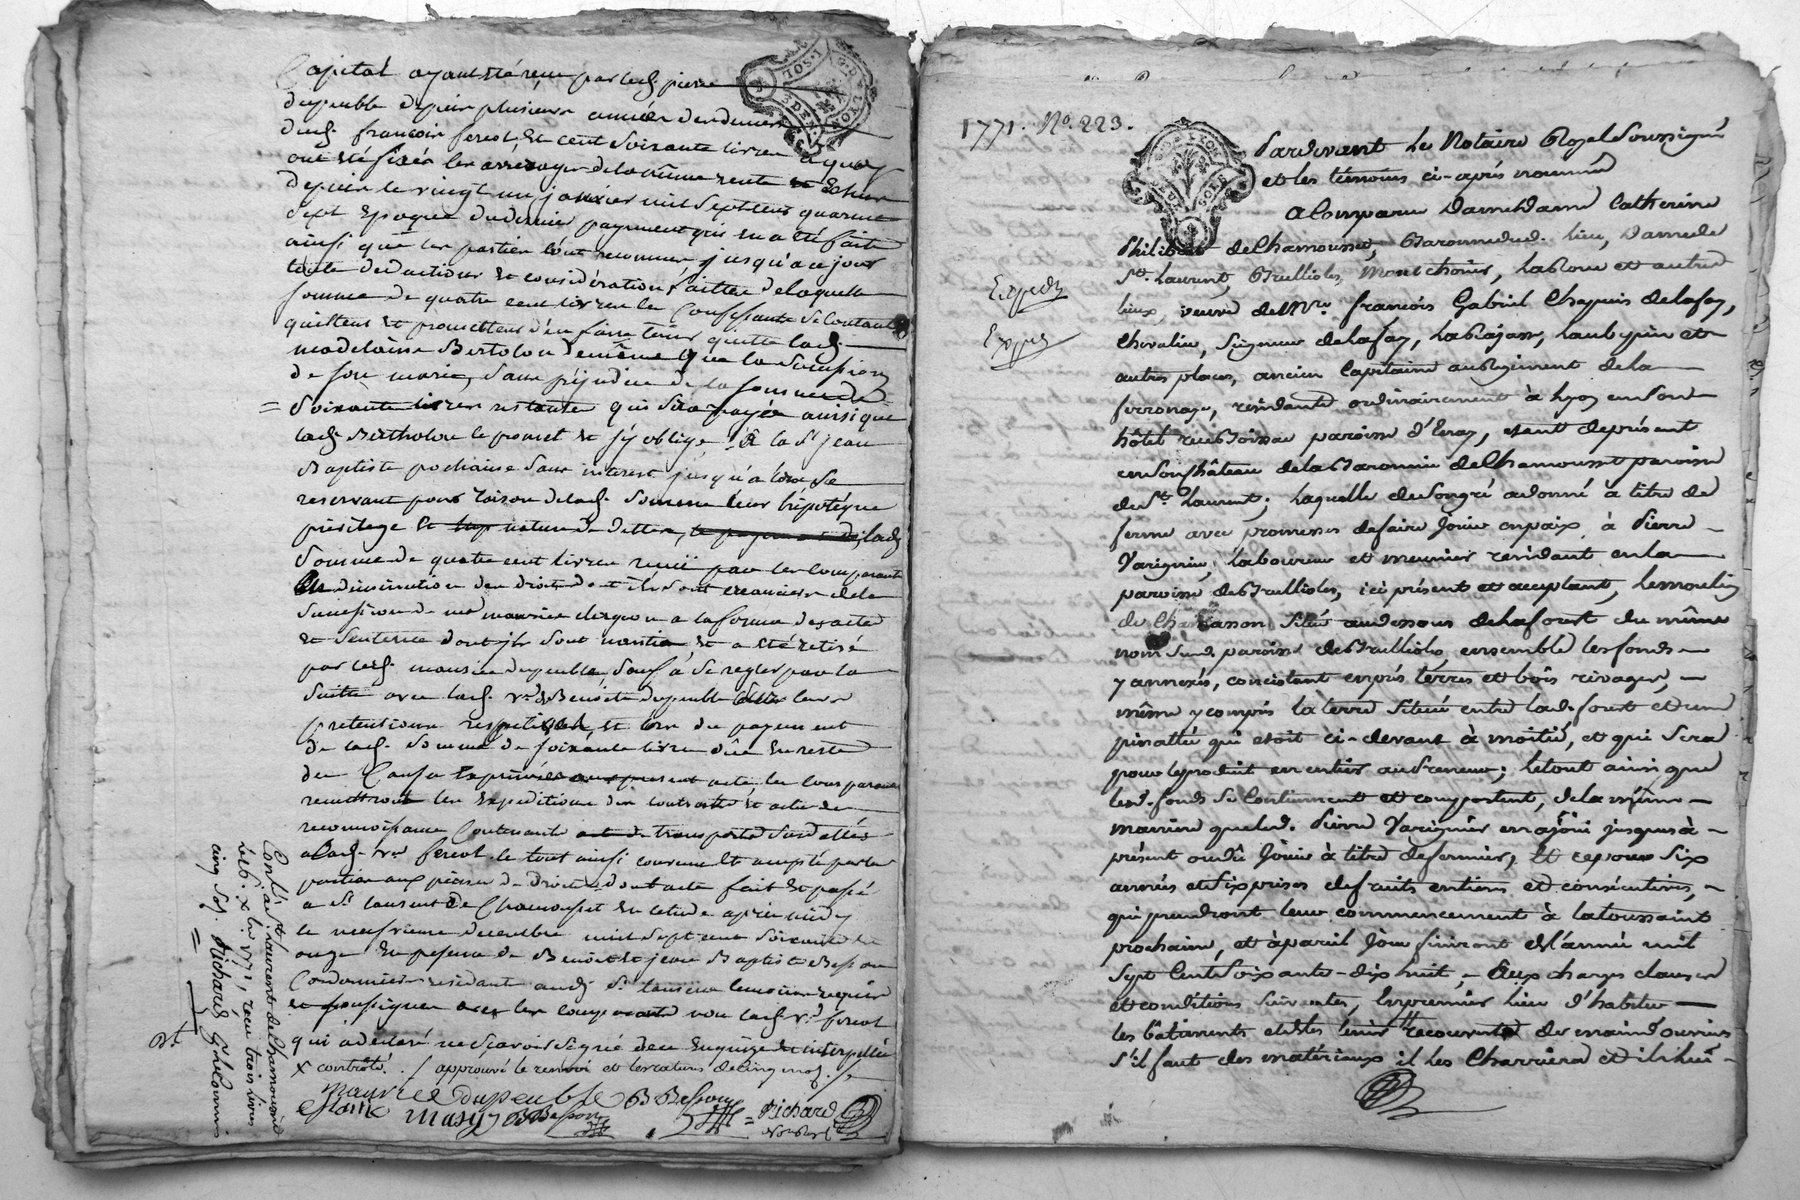 Capital ayant été reçu par led. pierre
dupeuble depuis plusieurs années
dud. francois ferest, et cent soixante livres a quoy
ont été fixés les arrerages de la même rente
depuis le vingt un janvier mil sept cent quarante
sept Epoque du dernier payement qui en a été fait
ainsi que les parties l'ont reconnu jusqu'a ce jour
toute deductions et considérations faittes de laquelle
somme de quatre cent livres les
quittent et promettent d'en faire tenir quitte lad.
madelaine Bertolon de même que la succession
de son mary, sans préjudice de la somme de
Soixante livres restante qui sera payée ainsi que
lad. Bertholon le promet et s'y oblige, à la St. jean
Baptiste prochaine sans interest jusqu'a lors se
reservant pour raison de lad. Somme leur hipotèque
privilege et nature de dettes, lad.
Somme de quatre cent livres par les comparants
en diminution des droits dont ils sont creanciers de la
Succession de a la forme des actes
et Sentence dont ils sont nantis, et a été retiré
par led. maurice dupeuble, sauf a se regler par la
Suitte avec lad. ve. Benoite dupeuble leurs
pretentions respectives, et lors du payement
de lad. Somme de soixante livres dûe en reste
des Causes Exprimées au present acte, les comparants
remettront les Expeditions des contracts et actes de
reconnoissance Contenants transports
a lad. ve. ferest le tout ainsi convenu et accepté par les
parties aux peines de droit, dont acte fait et passé
a St. laurent de Chamousset en l'etude après midy
le neufvieme decembre mil sept cent soixante et
onze En presence de Benoit et jean Baptiste Besson
Cordonniers residants aud. St. laurent temoins requis
et soussignés avec les comparants non lad. ve. ferest
qui a déclaré ne scavoir signer de ce Enquise et interpellée
x contrôlé. / approuvé le renvoi et les ratures de cinq mots. /
Maurice dupeuble B Besson
masy JB Besson
Richard
Contlé. à St. laurent de Chamousset
le 16. Xbre 1771, reçu trois livres
cinq sols. Richard
1771. No. 223.
G. D. LYON
SOLS
Pardevant Le Notaire Royal Soussigné
et les témoins ci-après nommés
A Comparu Dame Dame Catherine
Philibert de Chamousset, Baronne dud. lieu, Dame de
St. Laurent, Brullioles, Montchonin, La Roue et autres
lieux, veuve de Mre. françois Gabriel Chapuis de Lafay,
Chevalier, Seigneur de Lafay, La Bajasse, Laubepin et
autres places, ancien Capitaine au Régiment de la
ferronaye, résidante ordinairement à Lyon en son
hôtel rue Boissac paroisse d'Enay, etant de présent
en son Château de la Baronnie de Chamousset paroisse
de St. Laurent; Laquelle de son gré a donné à titre de
ferme avec promesses de faire Jouir en paix, à Pierre
Varignier, Laboureur et meunier résidant en la
paroisse de Brullioles, ici présent et acceptant, Le moulin
de situé au dessous de La fourt du même
nom Susd. paroisse de Brullioles, ensemble les fonds
y annexés, consistant en prés terres et bois rivages,
même y compris la terre située entre lad. fourt et une
pinattée qui etoit ci-devant à moitié, et qui sera
pour le produit en entier au Preneur; Le tout ainsi que
lesd. fonds se Contiennent et comportent, de la même
manière que led. Pierre Varignier en a joüi jusques à
présent ou dû Jouir à titre de fermier, Et ce pour six
années et six prises de fruits entiers et consécutives,
qui prendront leur commencement à la toussaint
prochaine, et à pareil Jour finiront de l'année mil
Sept Cent Soixante-dix huit, Aux charges clauses
et conditions suivantes, En premier Lieu d'habiter
les bâtiments et de les tenir recouverts de main d'ouvriers
S'il faut des matériaux il Les Charriera et il lui